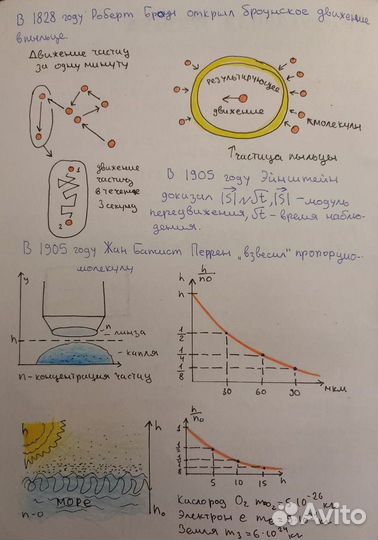 В 1828 году: Роберт Броун открыл броунское движение
в пыльце.
Движение частиц
за одну минуту
результирующее
движение
молекулы
частица пыльцы
движение
частиц
в течение
3 секунд
1
2
В 1905 году Эйнштейн
доказал |S|~√t, |S| - модуль
передвижения, √t - время наблю-
дения.
В 1905 году Жан Батист Перрен „взвесил" пропорцио-
молекулу
y
h
n
линза
капля
n-концентрация частиц
h
n/n0
1
1/2
1/4
1/8
30
60
90
мкм
МОРЕ
h
n-0
h0
n/n0
5
10
15
h
Кислород O₂ mO₂=5·10⁻²⁶ кг
Электрон e
Земля mз=6·10²⁴ кг
Avito